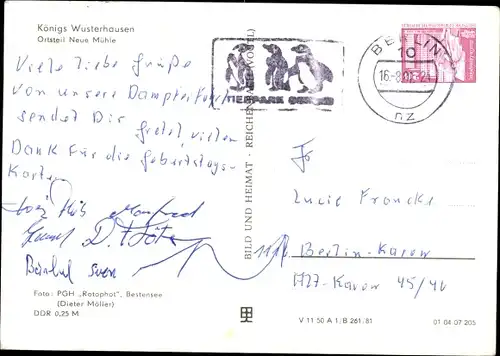 Königs Wusterhausen
Ortsteil Neue Mühle
Viele liebe Grüße
von unsere Dampferfahrt
sendet Dir Gretel, vielen
Dank für die Geburtstags-
Karte.
Manfred
Bärbel Sven
Foto: PGH „Rotophot", Bestensee
(Dieter Möller)
DDR 0,25 M
BILD UND HEIMAT · REICHENBACH (VOGTL)
TIERPARK BERLIN
BERLIN
10
16.-8.
nz
Fr
Lucie Francke
Berlin-Karow
Karow 45/46
V 11 50 A 1/B 261/81
01 04 07 205